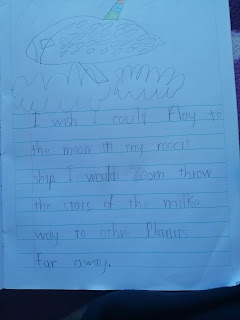 I wish I could flay to
the moon in my rocet
ship I would Zoom throw
the stars of the milke
way to othr Planits
far away.